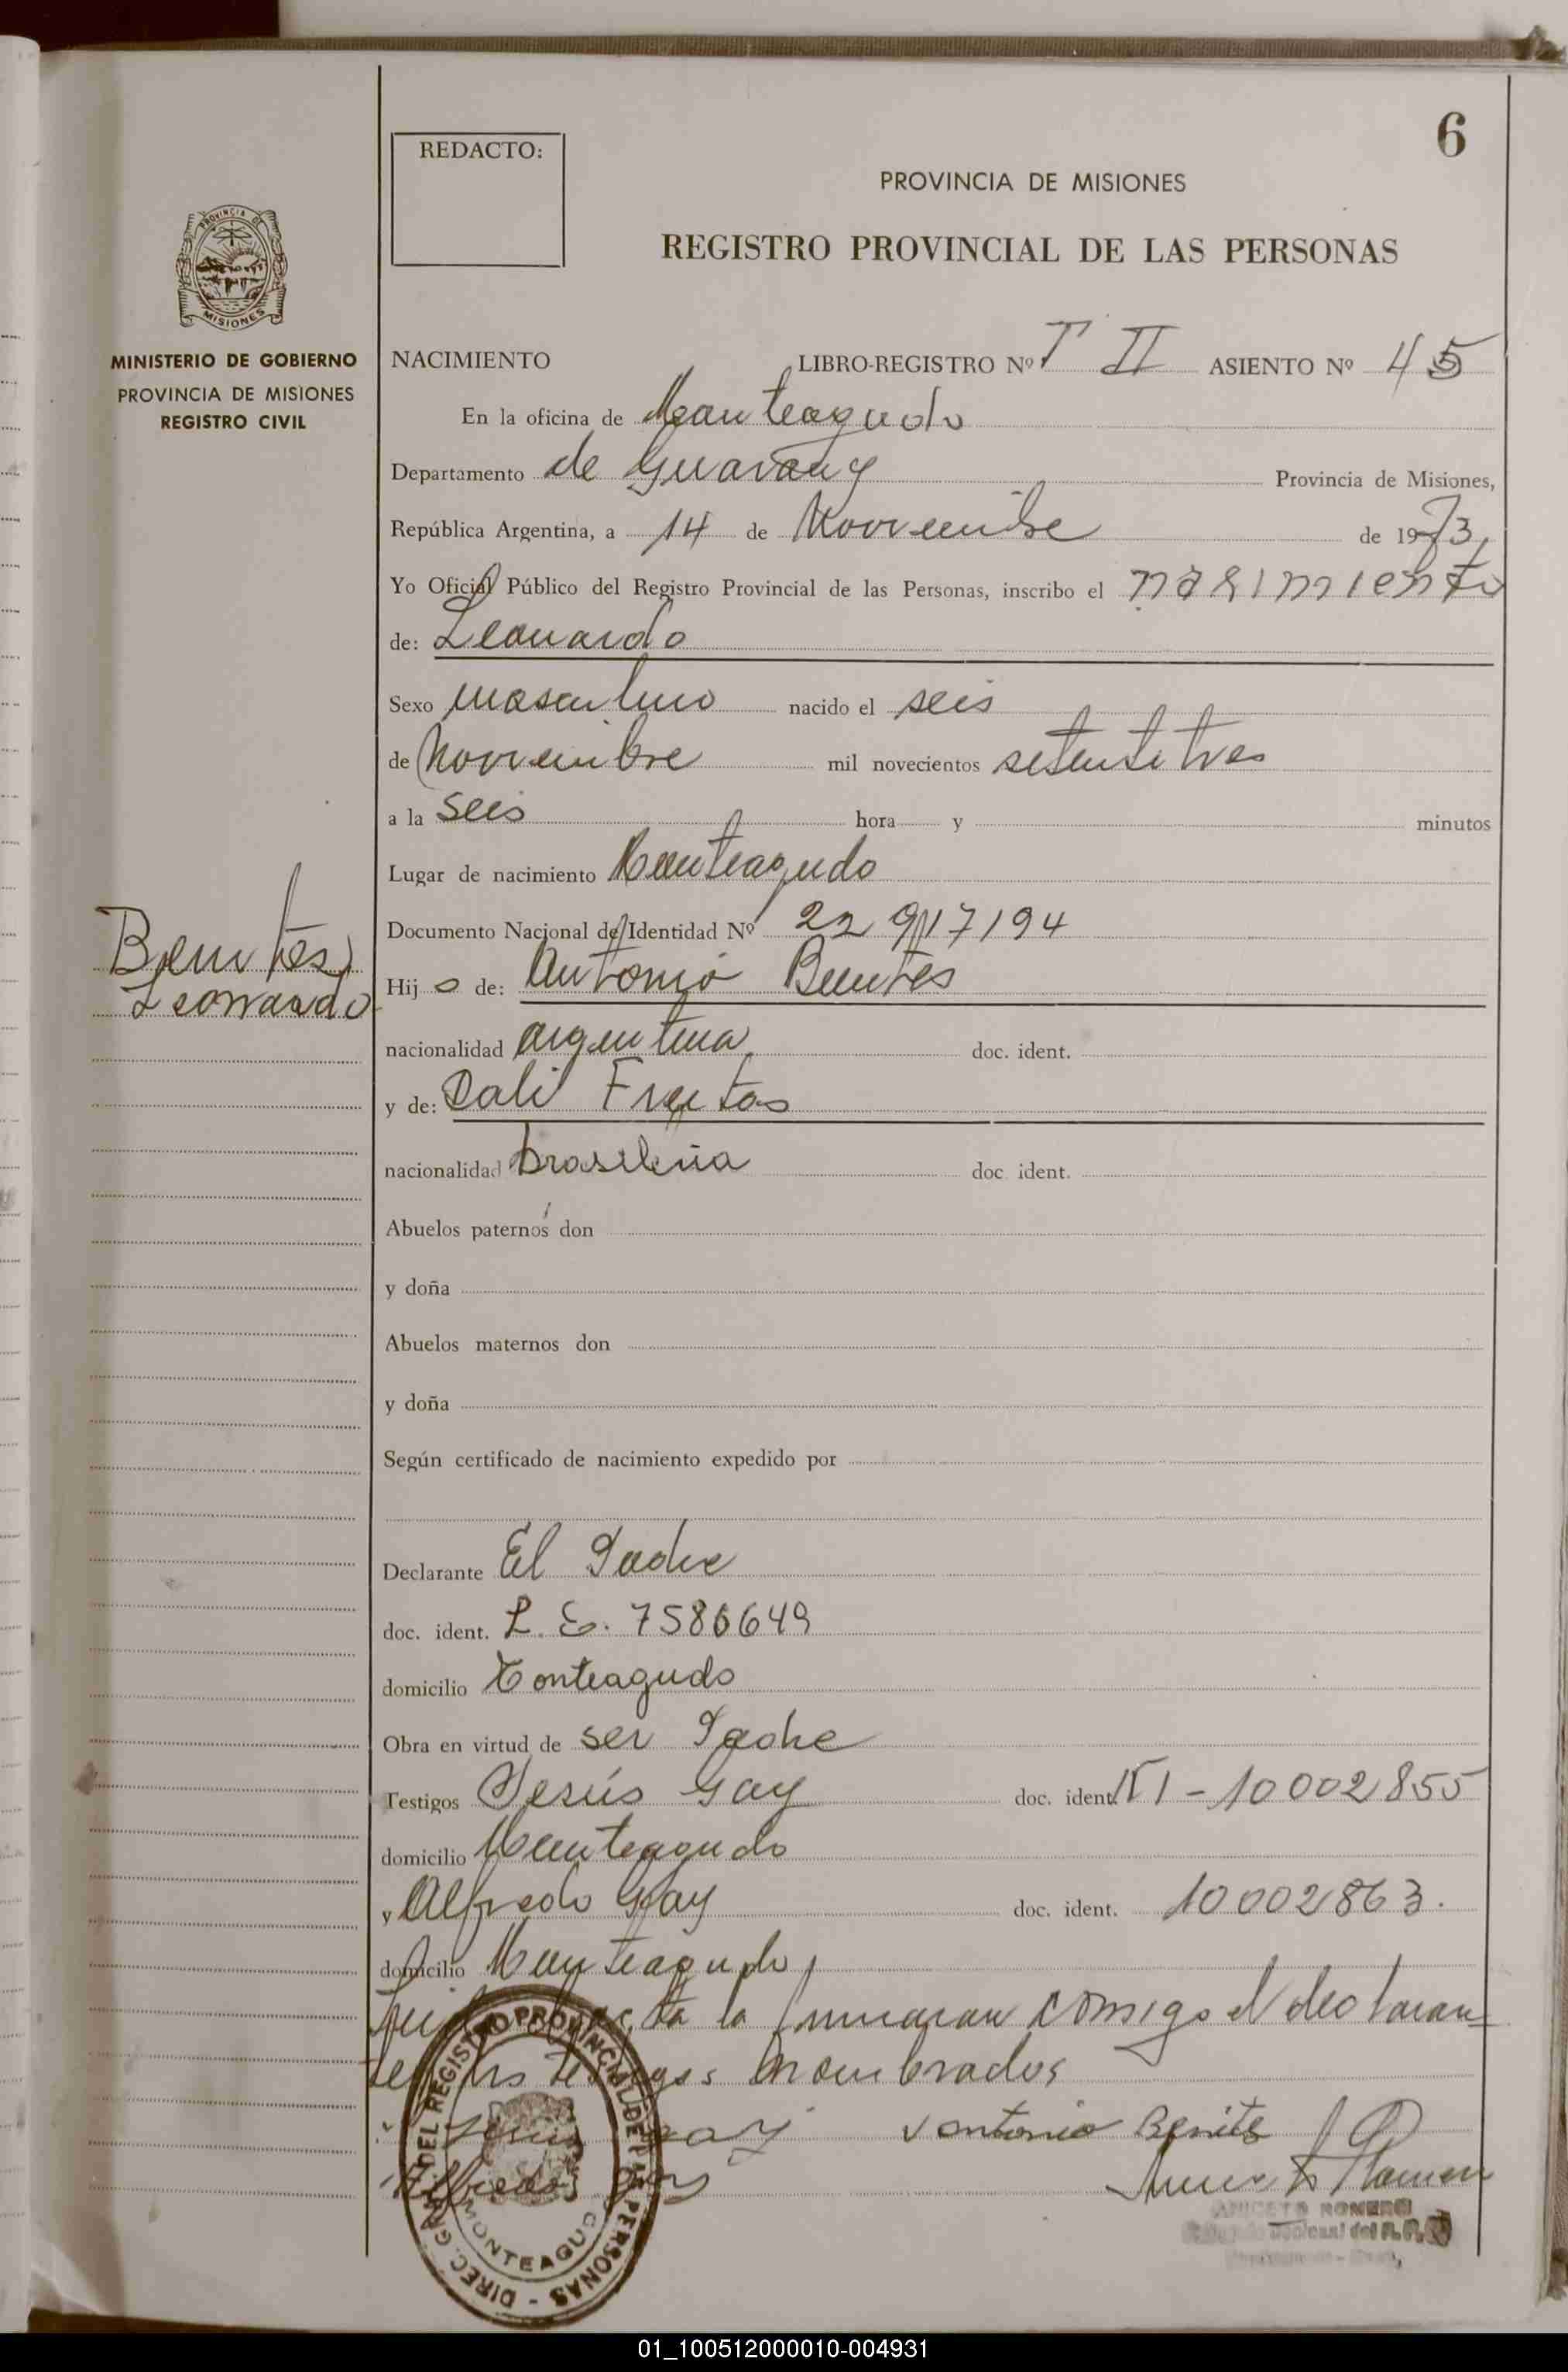 6
REDACTO:
PROVINCIA DE MISIONES
REGISTRO PROVINCIAL DE LAS PERSONAS
PROVINCIA DE
MISIONES
MINISTERIO DE GOBIERNO
PROVINCIA DE MISIONES
REGISTRO CIVIL
Benites,
Leonardo
NACIMIENTO LIBRO-REGISTRO Nº T II ASIENTO Nº 45
En la oficina de Monteagudo
Departamento de Guarany Provincia de Misiones,
República Argentina, a 14 de Noviembre de 1973,
Yo Oficial Público del Registro Provincial de las Personas, inscribo el nasimiento
de: Leonardo
Sexo masculino nacido el seis
de Noviembre mil novecientos setentitres
a la seis hora y minutos
Lugar de nacimiento Monteagudo
Documento Nacional de Identidad Nº 22 917194
Hij o de: Antonio Benites
nacionalidad argentina doc. ident.
y de: Dali Freitas
nacionalidad brasileña doc ident.
Abuelos paternos don
y doña
Abuelos maternos don
y doña
Según certificado de nacimiento expedido por
Declarante El Padre
doc. ident. L. E. 7586649
domicilio Monteagudo
Obra en virtud de ser Padre
Testigos Jesús Gay doc. ident. 10002855
domicilio Monteagudo
y Alfredo Gay doc. ident. 10002863.
domicilio Monteagudo
acta la firmaran comigo el declaran=
te los testigos nombrados
Jesus Gay Antonio Benites
Alfredo Gay
ANICETO ROMERO
DIREC. GRAL. DEL REGISTRO PROVINCIAL DE LAS PERSONAS -
MONTEAGUDO
01_100512000010-004931